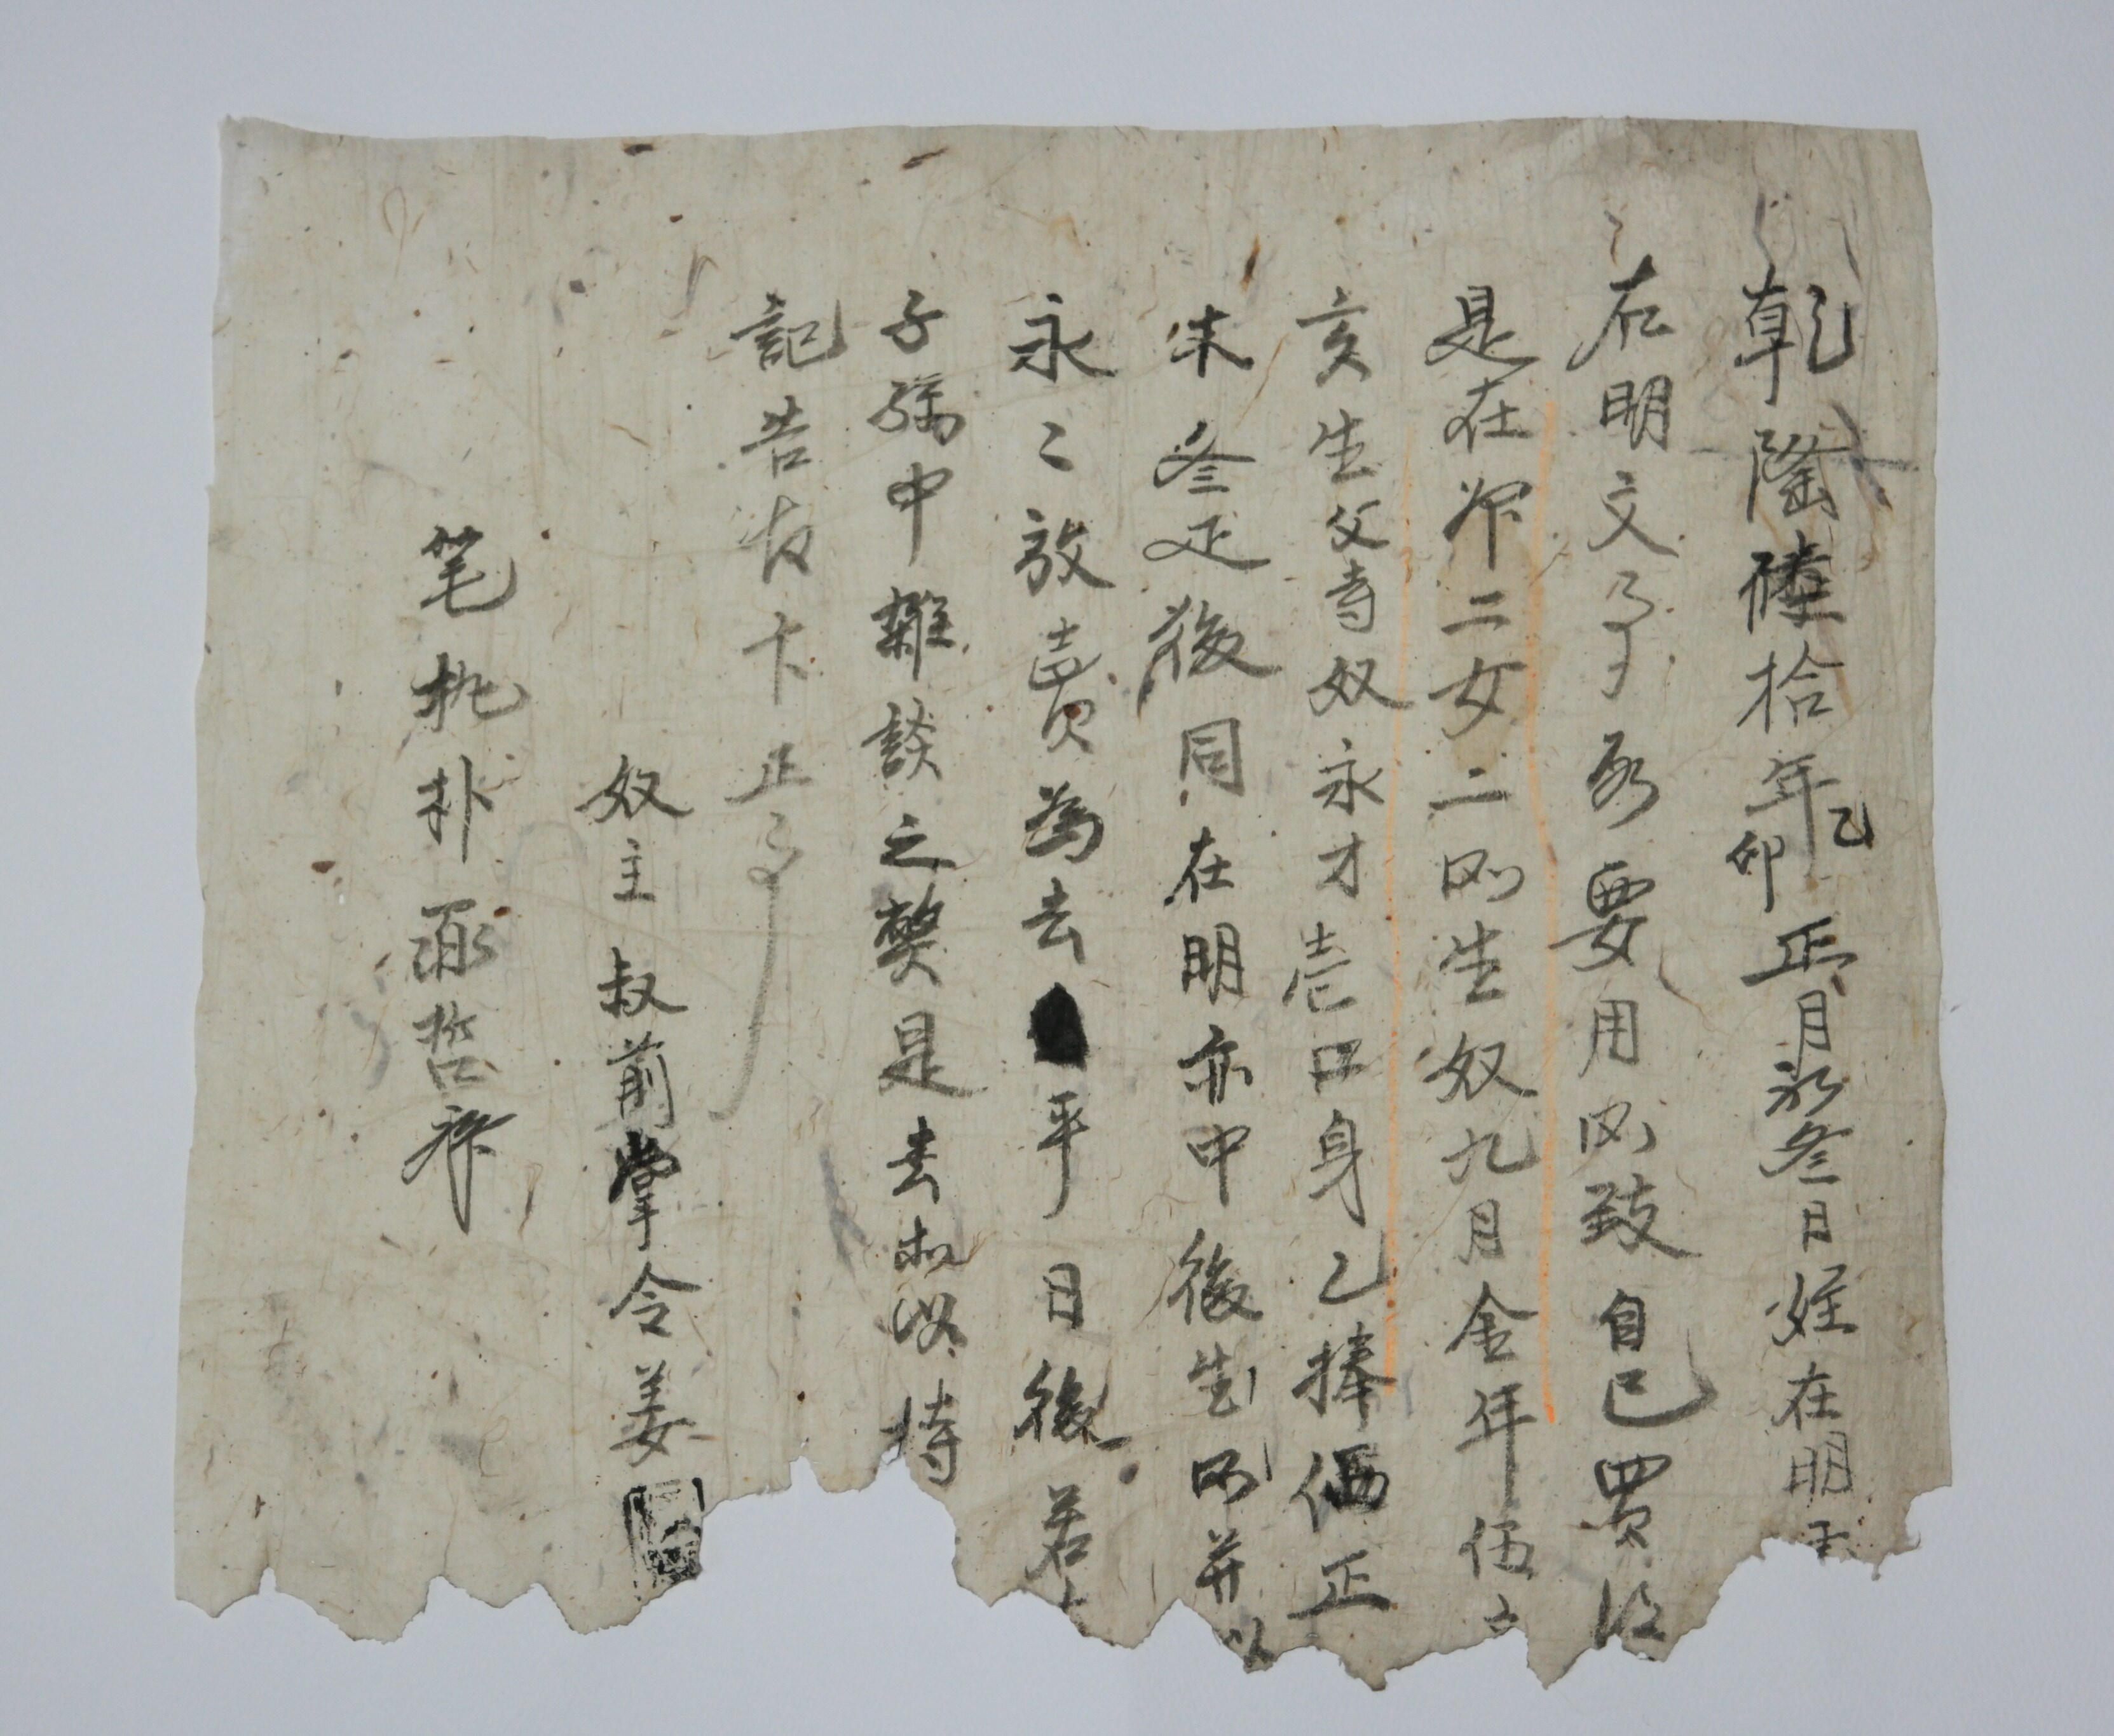 乾隆陸拾年乙卯正月初叁日姪在明
右明文事段要用所致自己買得
是在婢二女二所生奴九月金年伍
亥生父寺奴永才壹口身乙捧価正
木叁疋後同在明亦中後生所并以
永〻放賣為去乎日後若
子孫中雜談之獘是去 持
記告官卞正事
奴主叔前掌令姜
笔執朴 哲